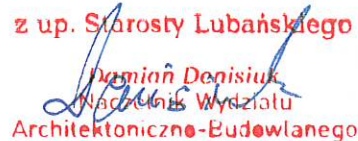 z up. Starosty Lubańskiego
Damian Denisiuk
Naczelnik Wydziału
Architektoniczno-Budowlanego